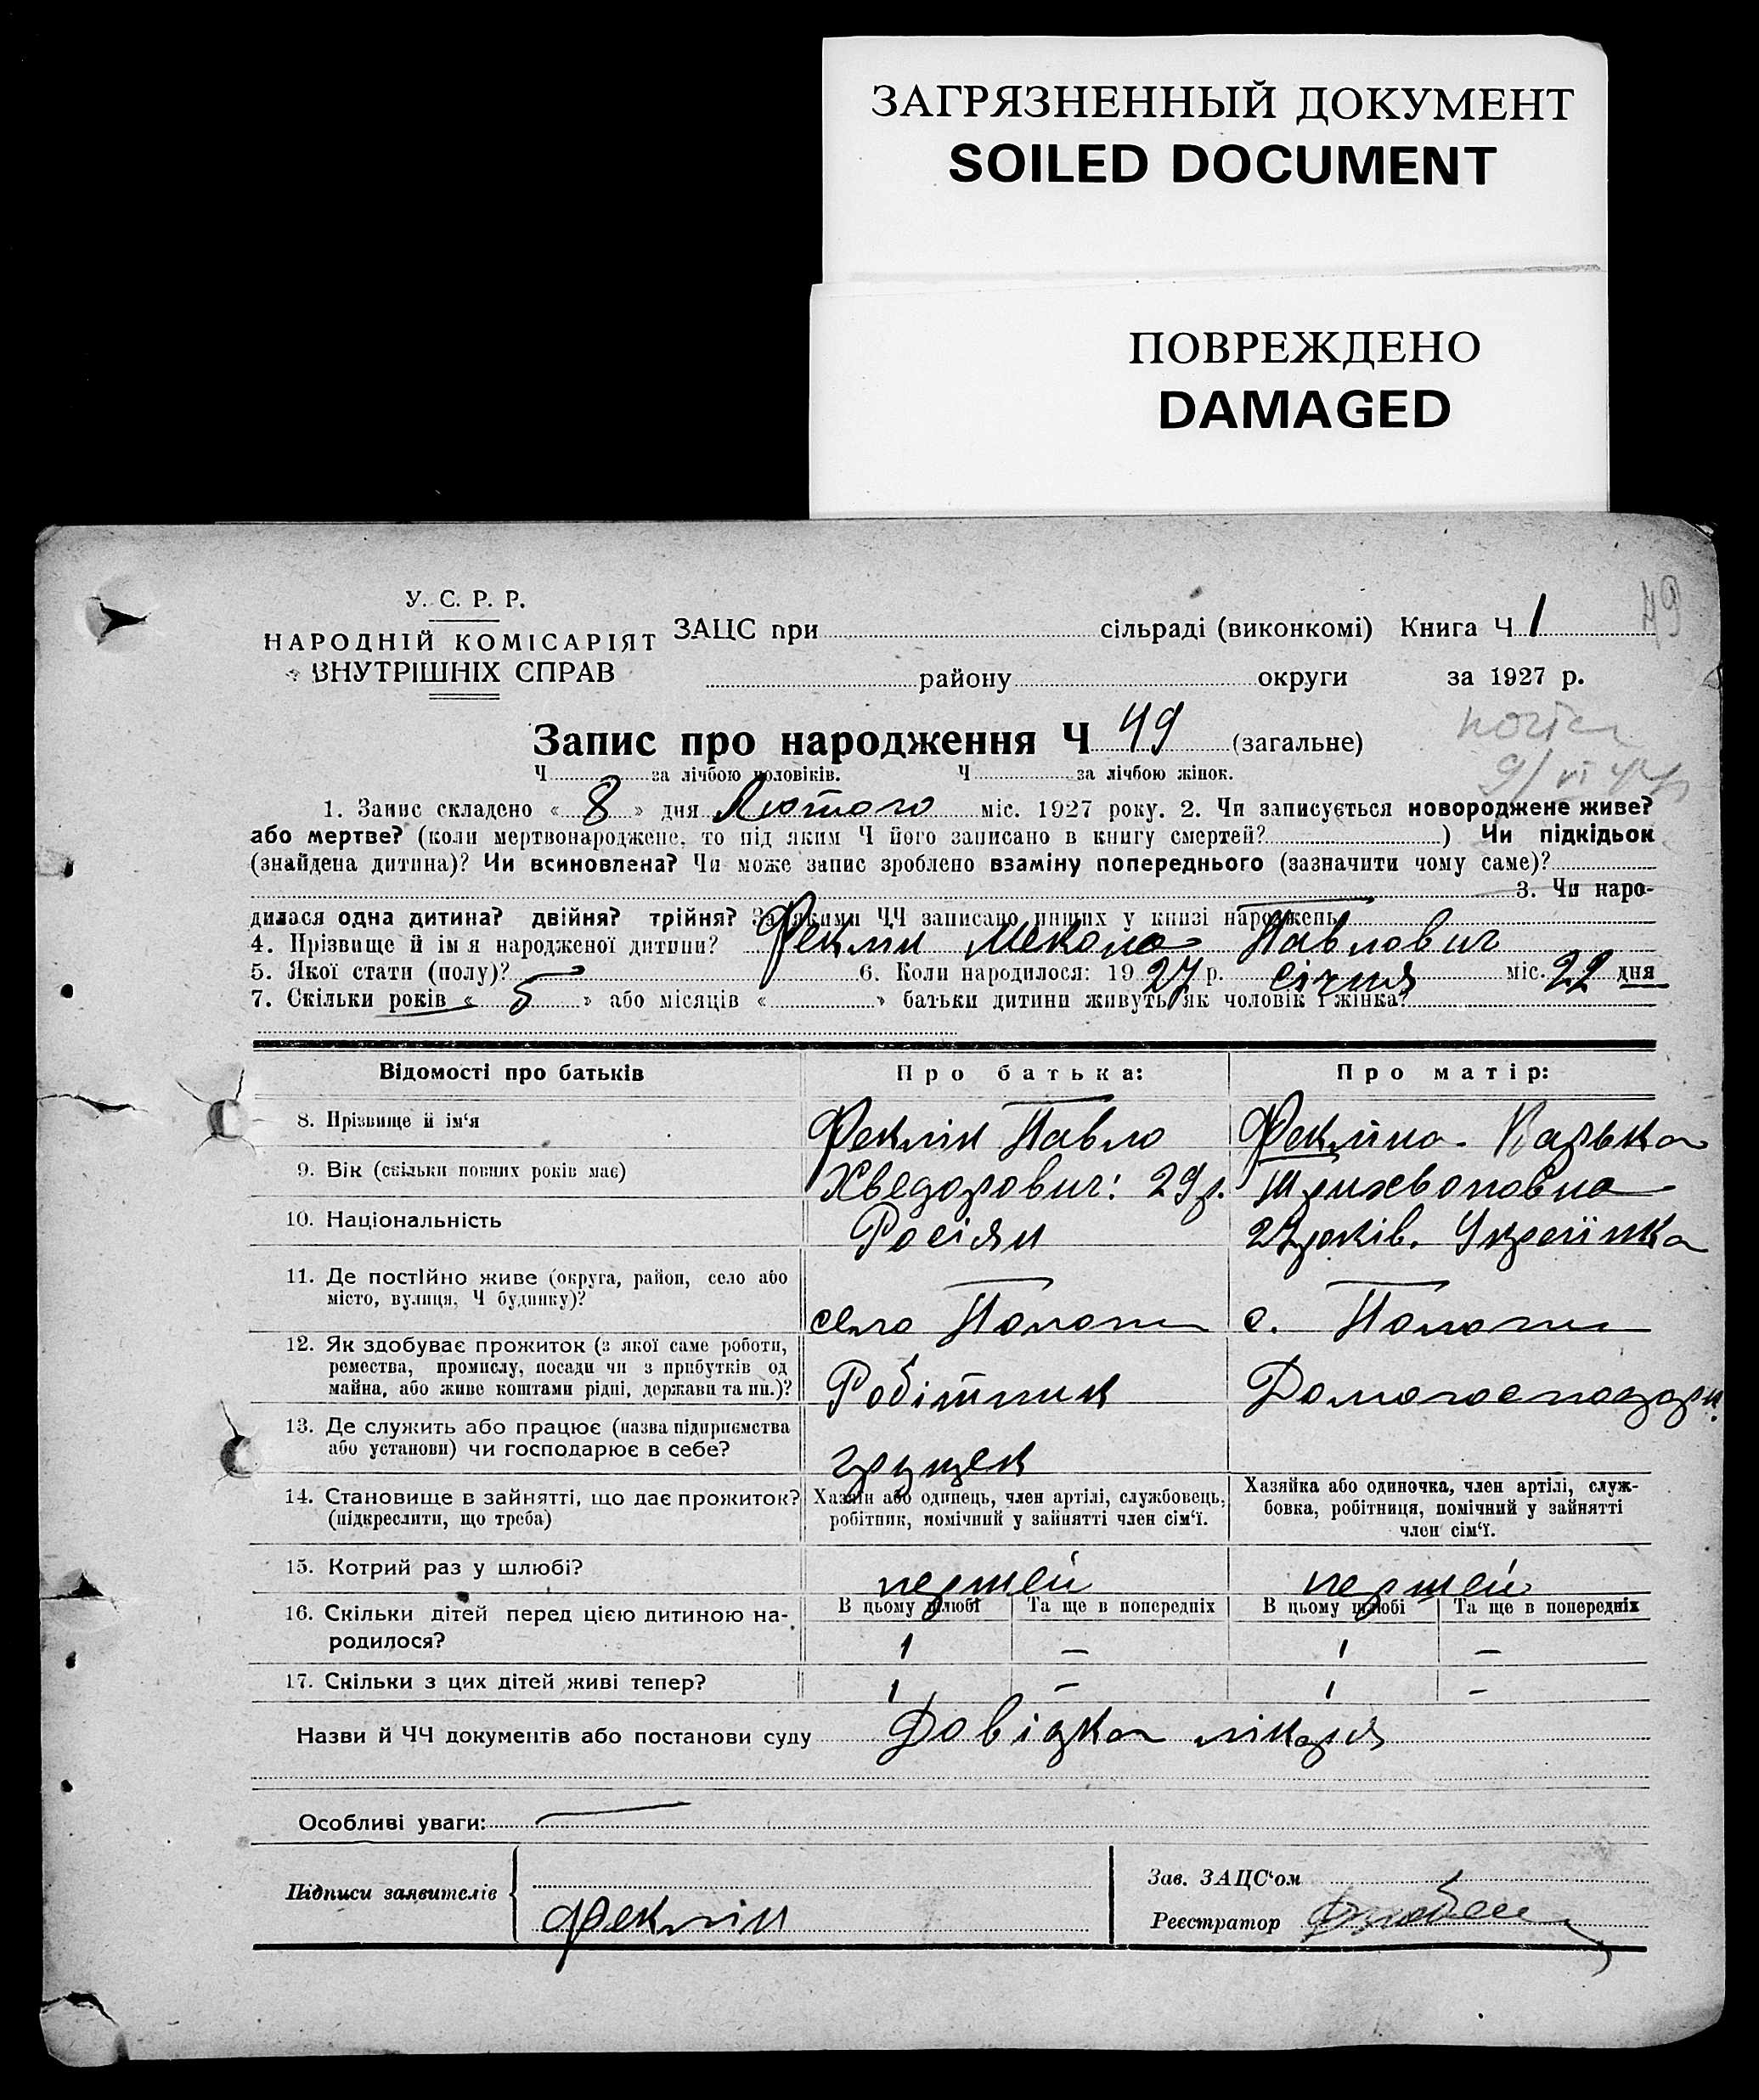 ЗАГРЯЗНЕННЫЙ ДОКУМЕНТ
SOILED DOCUMENT
ПОВРЕЖДЕНО
DAMAGED
49
У. С. Р. Р.
НАРОДНІЙ КОМІСАРІЯТ
ВНУТРІШНІХ СПРАВ
ЗАЦС при сільраді (виконкомі) Книга Ч 1
району округи за 1927 р.
Запис про народження Ч 49 (загальне)
Ч за лічбою чоловіків. Ч за лічбою жінок.
9/VI
1. Запис складено « 8 » дня Лютого міс. 1927 року. 2. Чи записується новороджене живе?
або мертве? (коли мертвонароджене, то під яким Ч його записано в книгу смертей? ) Чи підкідьок
(знайдена дитина)? Чи всиновлена? Чи може запис зроблено взаміну попереднього (зазначити чому саме)?
3. Чи наро-
дилася одна дитина? двійня? трійня? За якими ЧЧ записано инших у книзі народжень
4. Прізвище й ім я народженої дитини? Феклін Мекола Павлович
5. Якої стати (полу)? 6. Коли народилося: 1927 р. січня міс. 22 дня
7. Скільки років « 5 » або місяців « » батьки дитини живуть як чоловік і жінка?
Відомості про батьків Про батька: Про матір:
8. Прізвище й ім'я Феклін Павло Фекліна Варька
9. Вік (скільки повних років має) Хведорович: 29р. Трихвоновна
10. Національність Росіян 27 років. Українка
11. Де постійно живе (округа, район, село або
місто, вулиця, Ч будинку)? село Пологи с. Пологи
12. Як здобуває прожиток (з якої саме роботи,
ремества, промислу, посади чи з прибутків од
майна, або живе коштами рідні, держави та ин.)? Робітник Домогосподар.
13. Де служить або працює (назва підприємства
або установи) чи господарює в себе? грущек
14. Становище в зайнятті, що дає прожиток?
(підкреслити, що треба)
Хазяїн або одинець, член артілі, службовець,
робітник, помічний у зайнятті член сім'ї.
Хазяйка або одиночка, член артілі, служ-
бовка, робітниця, помічний у зайнятті
член сім'ї.
15. Котрий раз у шлюбі? першей першей
16. Скільки дітей перед цією дитиною на-
родилося?
В цьому шлюбі Та ще в попередніх В цьому шлюбі Та ще в попередніх
1 — 1 —
17. Скільки з цих дітей живі тепер? 1 — 1 —
Назви й ЧЧ документів або постанови суду Довідка лікаря
Особливі уваги:
Підписи заявителів Феклін
Зав. ЗАЦС'ом
Реєстратор